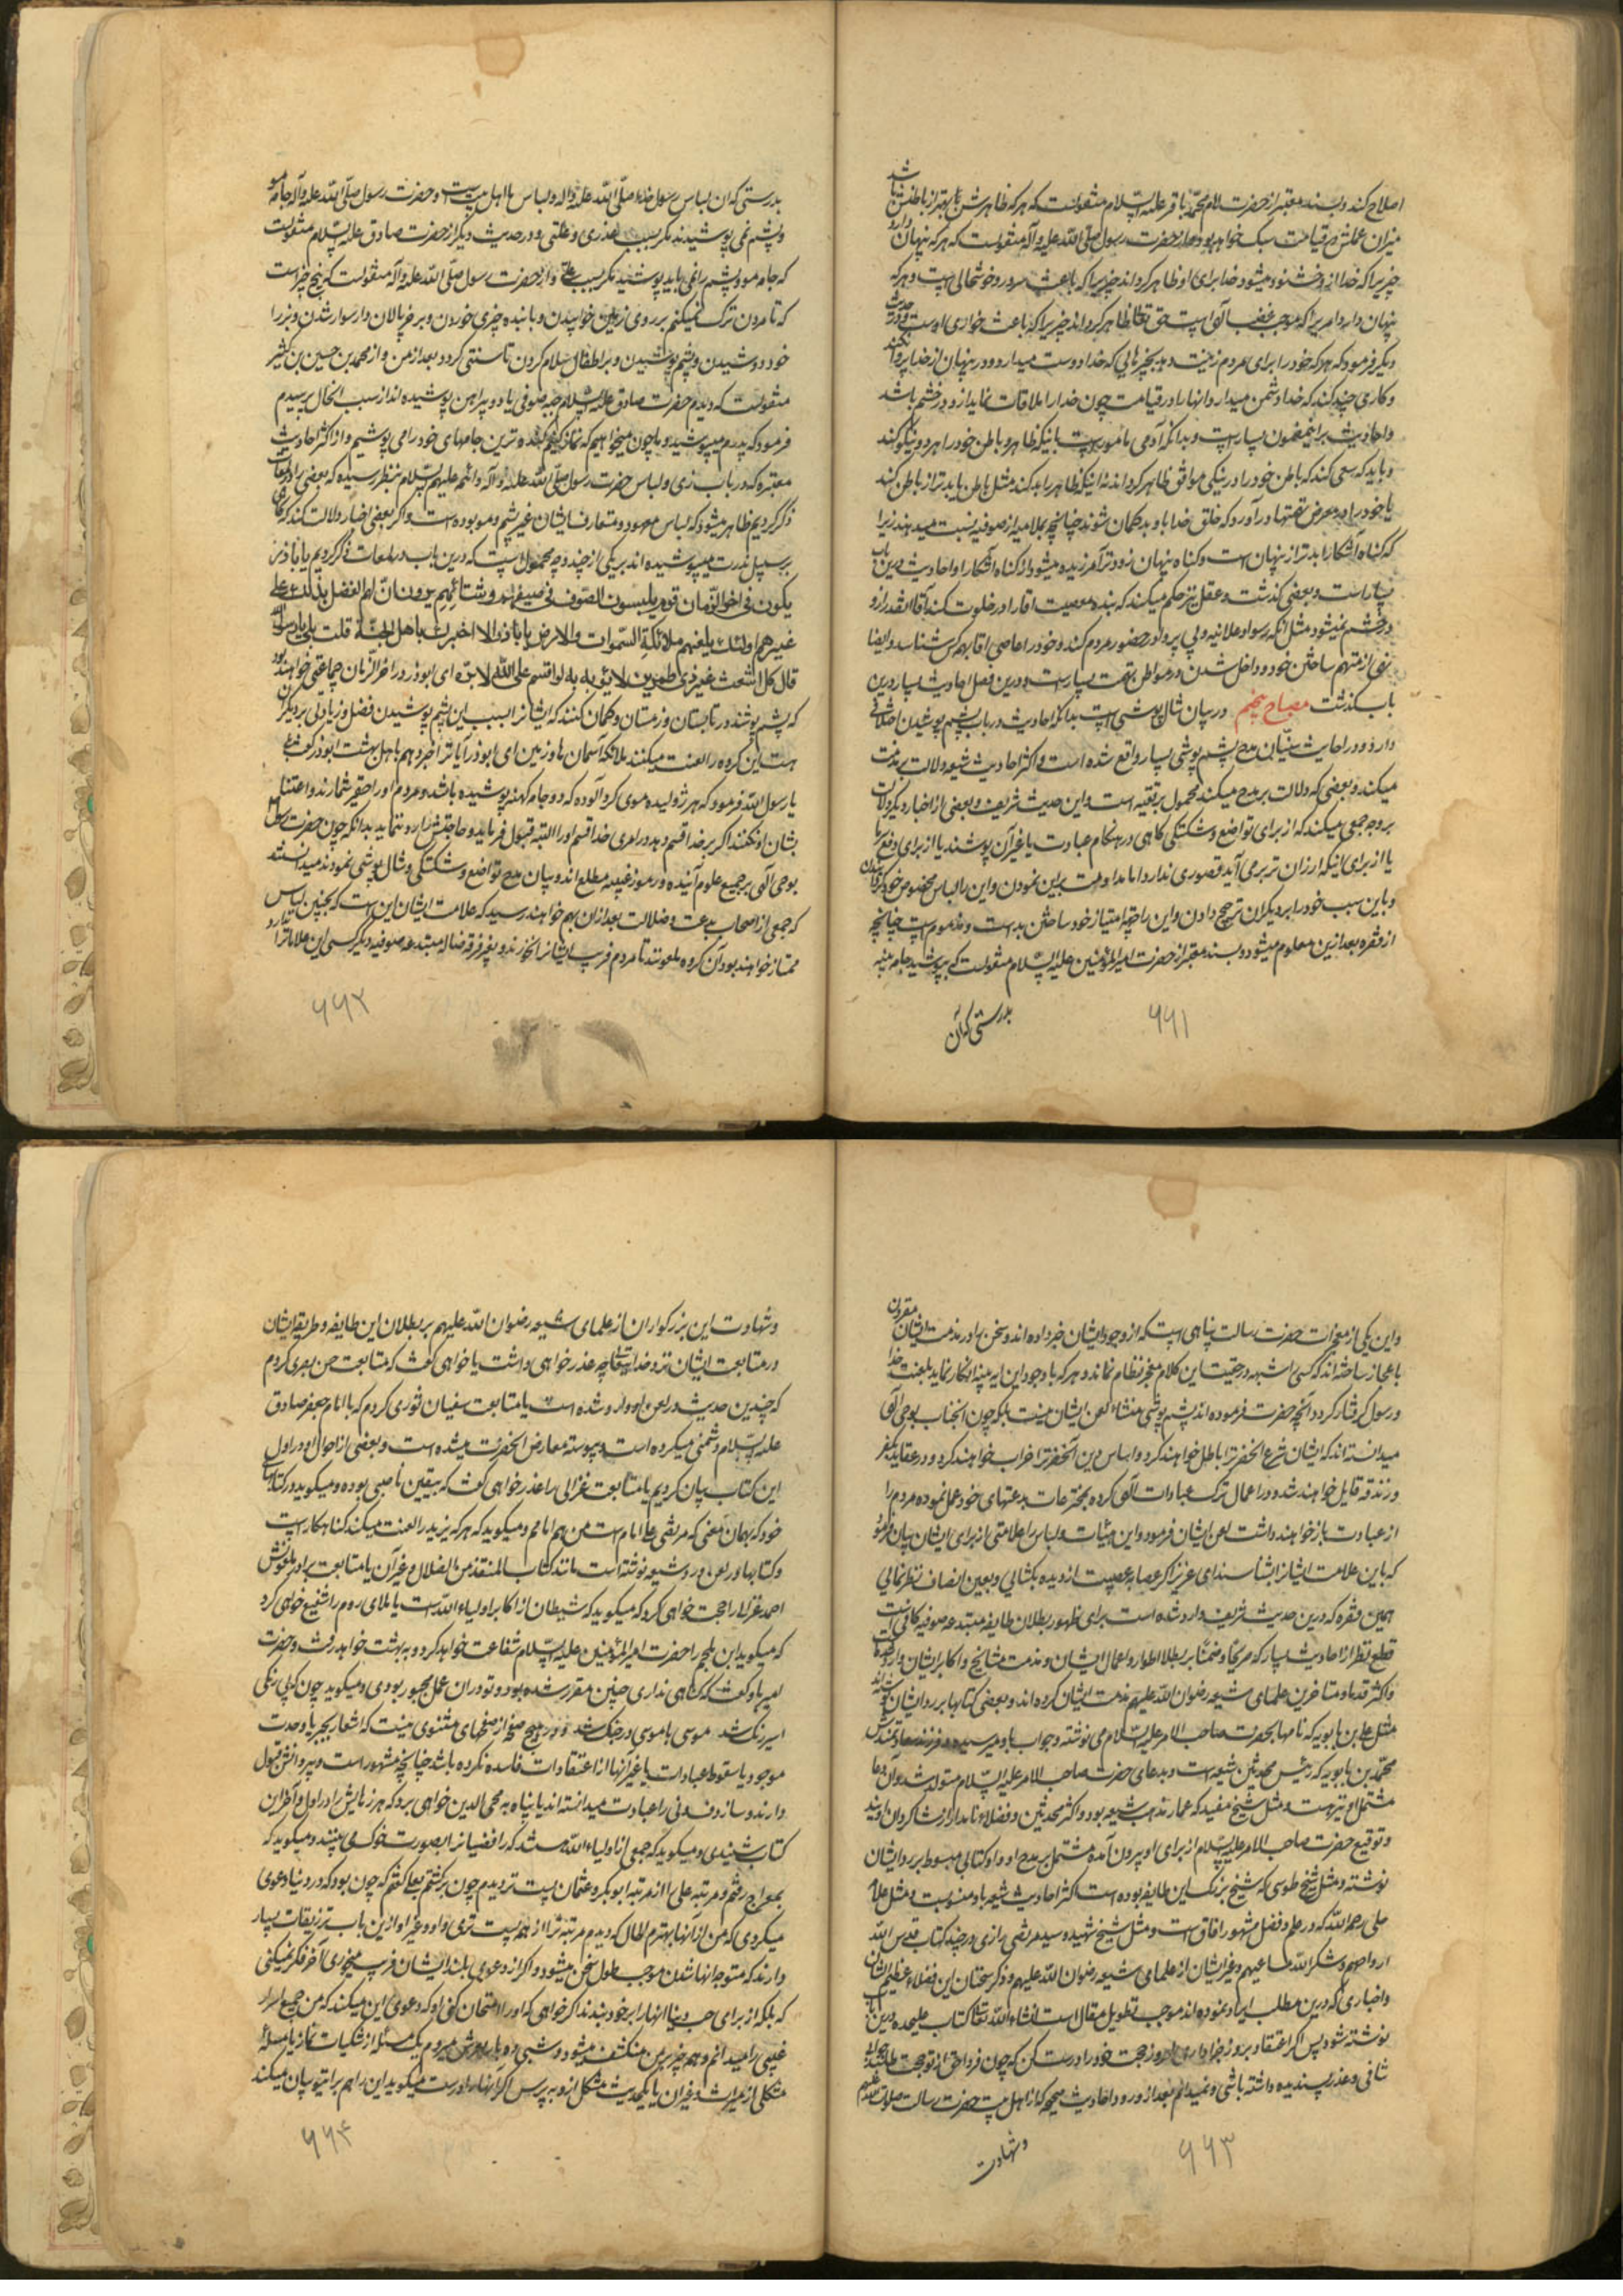 اصلاح کند و بسند معتبر از حضرت امام محمد باقر علیه السلام منقولست که هر که ظاهرش بهتر از باطنش باشد
میزان عملش در قیامت سبک خواهد بود و از حضرت رسول صلی الله علیه و آله منقولست که هر که پنهان دارد
چیزیرا که خدا از و خشنود میشود خدا برای او ظاهر گرداند چیزیرا که باعث سرور و خوشحالی است و هر که
پنهان دارد امریرا که موجب غضب الهی است حق تعالی ظاهر گرداند چیزیرا که باعث خواری اوست و در حدیث
دیگر فرمود که هر که خود را برای مردم زینت دهد بچیزهایی که خدا دوست میدارد و در پنهان از خدا پروا نکند
و کاری چند کند که خدا دشمن میدارد آنها را در قیامت چون خدا را ملاقات نماید از و در خشم باشد
و احادیث براینمضمون بسیار است و بدانکه آدمی مامور است بانیکه ظاهر و باطن خود را هر دو نیکو کند
و باید که سعی کند که باطن خود را در نیکی موافق ظاهر گرداند نه اینکه ظاهر را بد کند مثل باطن یا بدتر از باطن کند
یا خود را در معرض تهمتها در آورد که خلق خدا باو بدگمان شوند چنانچه بملامیه از صوفیه نسبت میدهند زیرا
که گناه آشکارا بدتر از پنهان است و گناه پنهان زودتر آمرزیده میشود از گناه آشکارا و احادیث درین باب
بسیار است و بعضی گذشت و عقل نیز حکم میکند که بنده معصیت آقا را در خلوت کند آقا آنقدر از و
در خشم نمیشود مثل آنکه رسوا و علانیه و بی پروا در حضور مردم کند و خود را عاصی آقا بهمه کس شناساند و ایضا
نهی از متهم ساختن خود و داخل شدن در مواطن تهمت بسیار است و درین فصل احادیث بسیار درین
باب گذشت مصباح پنجم در بیان شال پوشی است بدانکه احادیث در باب پشم پوشیدن اختلافی
دارد و در احادیث سنیان مدح پشم پوشی بسیار واقع شده است و اکثر احادیث شیعه دلالت بر مذمت
میکند و بعضی که دلالت بر مدح میکند محمول بر تقیه است و این حدیث شریف و بعضی از اخبار دیگر دلالت
بر وجه جمعی میکند که از برای تواضع و شکستگی گاهی در هنگام عبادت یا غیر آن پوشند یا از برای دفع سرما
یا از برای اینکه ارزان تر برمی آید قصوری ندارد اما مداومت براین نمودن و این را لباس مخصوص خود گردانیدن
و باین سبب خود را بر دیگران ترجیح دادن و این را جهة امتیاز خود ساختن بد است و مذموم است چنانچه
از فقره بعد ازین معلوم میشود و بسند معتبر از حضرت امیر المؤمنین علیه السلام منقولست که بپوشید جامه پنبه
بدرستی که آن
۶۶۱
بدرستی که آن لباس رسول خدا صلی الله علیه و اله و لباس ما اهل بیت است و حضرت رسول صلی الله علیه و آله جامه مو
و پشم نمی پوشیدند مگر بسبب عذری و علتی و در حدیث دیگر از حضرت صادق علیه السلام منقولست
که جامه مو و پشم را نمی باید پوشید مگر بسبب علتی و از حضرت رسول صلی الله علیه و آله منقولست که پنج چیز است
که تا مردن ترک نمیکنم بر روی زمین خوابیدن و با بنده چیزی خوردن و بر خر پالان دار سوار شدن و بز را
خود دوشیدن و پشم پوشیدن و بر اطفال سلام کردن تا سنتی گردد بعد از من و از محمد بن حسین بن کثیر
منقولست که دیدم حضرت صادق علیه السلام جبه صوفی یا دو پیراهن پوشیده اند از سبب انحال پرسیدم
فرمود که پدرم میپوشید و ما چون میخواهیم که نماز کنیم کنده ترین جامهای خود را می پوشیم و از اکثر احادیث
معتبره که در باب زی و لباس حضرت رسول صلی الله علیه و آله و ائمه علیهم السلام بنظر رسیده که بعضی را در لمعات
ذکر کردیم ظاهر میشود که لباس معهود و متعارف ایشان غیر پشم و مو بوده است و اگر بعضی اخبار دلالت کند که گاهی
بر سبیل ندرت میپوشیده اند بر یکی از چند وجه محمول است که درین باب در لمعات ذکر کردیم یا اباذر
یکون فی اخر الزمان قوم یلبسون الصوف فی صیفهم و شتائهم یرون ان لهم الفضل بذلک علی
غیرهم اولئک یلعنهم ملائکة السموات و الارض یا اباذر الا اخبرک باهل الجنة قلت بلی یا رسول الله
قال کل اشعث اغبر ذی طمرین لا یؤبه به لو اقسم علی الله لابره ای ابوذر در اخر الزمان جماعتی خواهند بود
که پشم پوشند در تابستان و زمستان و گمان کنند که ایشانرا بسبب این پشم پوشیدن فضل و زیادتی بر دیگران
هست این گروه را لعنت میکنند ملائکه آسمان ها و زمین ای ابوذر آیا ترا خبر دهم باهل بهشت ابوذر گفت بلی
یا رسول الله فرمود که هر ژولیده موی گردآلوده که دو جامه کهنه پوشیده باشد و مردم او را حقیر شمارند و اعتنا
بشان او نکنند اگر بر خدا قسم دهد در امری خدا قسم او را البته قبول فرماید و حاجتش را رد ننماید بدانکه چون حضرت رسول
بوحی الهی بر جمیع علوم آینده و رموز غیبیه مطلع اند و بیان مدح تواضع و شکستگی و شال پوشی نمودند میدانستند
که جمعی از اصحاب بدعت و ضلالت بعد از ان بهم خواهند رسید که علامت ایشان این است که بچنین لباس
ممتاز خواهند بود آن گروه ملعونند تا مردم فریب ایشانرا نخورند و بغیر فرقه ضاله مبتدعه صوفیه دیگر کسی این علامات را ندارد
۶۶۲
و این یکی از معجزات حضرت رسالت پناهی است که از وجود ایشان خبر داده اند و سخن را در مذمت ایشان مقرون
باعجاز ساخته اند که کسی را شبهه در حقیت این کلام معجز نظام نماند و هر که با وجود این آیه بینه انکار نماید بلعنت خدا
و رسول گرفتار گردد و آنچه حضرت فرموده اند پشم پوشی منشاء لعن ایشان نیست بلکه چون انجناب بوحی الهی
میدانسته اند که ایشان شرع انحضرترا باطل خواهند کرد و اساس دین آنحضرترا خراب خواهند کرد و در عقاید بکفر
و زندقه قایل خواهند شد و در اعمال ترک عبادات الهی کرده بمخترعات بدعتهای خود عمل نموده مردم را
از عبادت باز خواهند داشت لعن ایشان فرمود و این هیئات و لباس را علامتی از برای ایشان بیان فرمود
که باین علامت ایشانرا بشناسند ای عزیز اگر عصابه عصبیت از دیده بکشایی و بعین انصاف نظر نمایی
همین فقره که درین حدیث شریف وارد شده است برای ظهور بطلان طایفه مبتدعه صوفیه کافی است
قطع نظر از احادیث بسیار که صریحا و ضمنا بر بطلان اطوار و اعمال ایشان و مذمت مشایخ و اکابر ایشان وارد شده
و اکثر قدما و متاخرین علمای شیعه رضوان الله علیهم مذمت ایشان کرده اند و بعضی کتابها بر رد ایشان نوشته اند
مثل علی بن بابویه که نامها بحضرت صاحب الامر علیه السلام می نوشته و جواب باو میرسیده و فرزند سعادتمندش
محمد بن بابویه که رئیس محدثین شیعه است و بدعای حضرت صاحب الامر علیه السلام متولد شد و آن دعا
مشتمل بر مدح او نیز هست و مثل شیخ مفید که عماد مذهب شیعه بوده و اکثر محدثین و فضلاء نامدار از شاگردان اویند
و توقیع حضرت صاحب الامر علیه السلام از برای او بیرون آمده مشتمل بر مدح او و او کتابی مبسوط بر رد ایشان
نوشته و مثل شیخ طوسی که شیخ بزرگ این طایفه بوده است و اکثر احادیث شیعه باو منسوبست و مثل علامه
حلی رحمه الله که در علم و فضل مشهور آفاق است و مثل شیخ شهید و سید مرتضی رازی در چند کتاب قدس الله
ارواحهم و شکر الله مساعیهم و غیر ایشان از علمای شیعه رضوان الله علیهم و ذکر سخنان این فضلاء عظیم الشان
و اخباری که درین مطلب ایراد نموده اند موجب تطویل مقال است انشاء الله تعالی کتاب علیحده درین باب
نوشته شود پس اگر اعتقاد بروز جزا داری امروز حجت خود را درست کن که چون فردا حق از تو حجت طلبد جواب
شافی و عذر پسندیده داشته باشی و نمیدانم بعد از ورود احادیث صحیحه که از اهل بیت حضرت رسالت صلوات الله علیهم
و شهادت
۶۶۳
و شهادت این بزرگواران از علمای شیعه رضوان الله علیهم بر بطلان این طایفه و طریقه ایشان
در متابعت ایشان نزد خدا تعالی چه عذر خواهی داشت یا خواهی گفت که متابعت حسن بصری کردم
که چندین حدیث در لعن او وارد شده است یا متابعت سفیان ثوری کردم که با امام جعفر صادق
علیه السلام دشمنی میکرده است و پیوسته معارض انحضرت میشده است و بعضی از احوال او در اول
این کتاب بیان کردیم یا متابعت غزالی را عذر خواهی گفت که بیقین ناصبی بوده و میگوید در کتابهای
خود که بهمان معنی که مرتضی علی امام است من هم امامم و میگوید که هر که یزید را لعنت میکند گناهکار است
و کتابها در لعن و رد شیعه نوشته است مانند کتاب المنقذ من الضلال و غیر آن یا متابعت برادر ملعونش
احمد غزالی را حجت خواهی کرد که میگوید که شیطان از اکابر اولیاء الله است یا ملای روم را شفیع خواهی کرد
که میگوید ابن ملجم را حضرت امیر المؤمنین علیه السلام شفاعت خواهد کرد و به بهشت خواهد رفت و حضرت
امیر باو گفت که گناهی نداری چنین مقرر شده بود و تو در ان عمل مجبور بودی و میگوید چون که بی رنگی
اسیر رنگ شد موسی با موسی در جنگ شد و در هیچ صفحه از صفحهای مثنوی نیست که اشعار بجبر یا وحدت
موجود یا سقوط عبادات یا غیر آنها از اعتقادات فاسده نکرده باشد چنانچه مشهور است و پیروانش قبول
دارند و ساز و دف و نی را عبادت میدانسته اند یا پناه به محی الدین خواهی برد که هرزهایش را در اول و اخر این
کتاب شنیدی و میگوید که جمعی از اولیاء الله هستند که رافضیانرا بصورت خوک می بینند و میگوید که
بمعراج رفتم و مرتبه علی را از مرتبه ابوبکر و عثمان پست تر دیدم چون برگشتم بعلی گفتم که چون بود که در دنیا دعوی
میکردی که من از آنها بهترم الحال که دیدم مرتبه ترا از همه پست تری و او و غیر او ازین باب تزریقات بسیار
دارند که متوجه انها شدن موجب طول سخن میشود و اگر از دعوی بلند ایشان فریب میخوری آخر فکر نمیکنی
که بلکه از برای حب دنیا انها را بر خود بندند اگر خواهی که او را امتحان کنی او که دعوی این میکند که من جمیع اسرار
غیبی را میدانم و همه چیز بر من منکشف میشود و شبی ده بار بعرش میروم یک مسئله از شکیات نماز یا مسئله
مشکلی از میراث و غیر ان یا یکحدیث مشکل از و بپرس اگر آنها را درست میگوید این را هم برای تو بیان میکند
۶۶۴